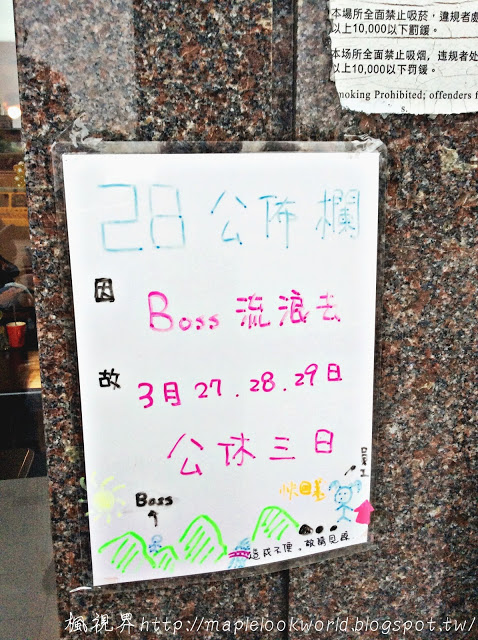 本場所全面禁止吸菸，違規者處
以上10,000以下罰鍰。
本场所全面禁止吸烟，违规者处
以上10,000以下罚鍰。
moking Prohibited; offenders f
s.
28 公佈欄
因 Boss 流浪去
故 3月27.28.29日
公休三日
員工
快回來
Boss
造成不便，敬請見諒
楓視界http://maplelookworld.blogspot.tw/